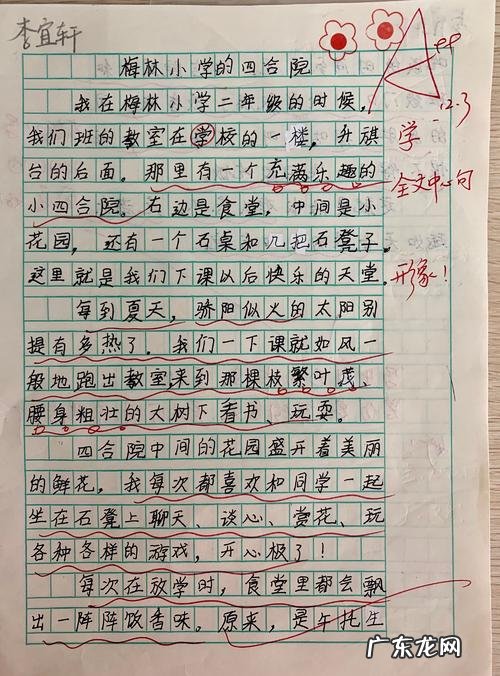 李宜轩
梅林小学的四合院
我在梅林小学二年级的时候,
我们班的教室在学校的一楼,升旗
台的后面。那里有一个充满乐趣的
小四合院。右边是食堂,中间是小
花园,还有一个石桌和几把石凳子。
这里就是我们下课以后快乐的天堂。
每到夏天,骄阳似火的太阳别
提有多热了。我们一下课就如风一
般地跑出教室,来到那棵枝繁叶茂、
腰身粗壮的大树下看书、玩耍。
四合院中间的花园盛开着美丽
的鲜花,我每次都喜欢和同学一起
坐在石凳上聊天、谈心、赏花、玩
各种各样的游戏,开心极了!
每次在放学时,食堂里都会飘
出一阵阵饭香味。原来,是午托生
12.3
学
全文中心句
形象!
广东龙网